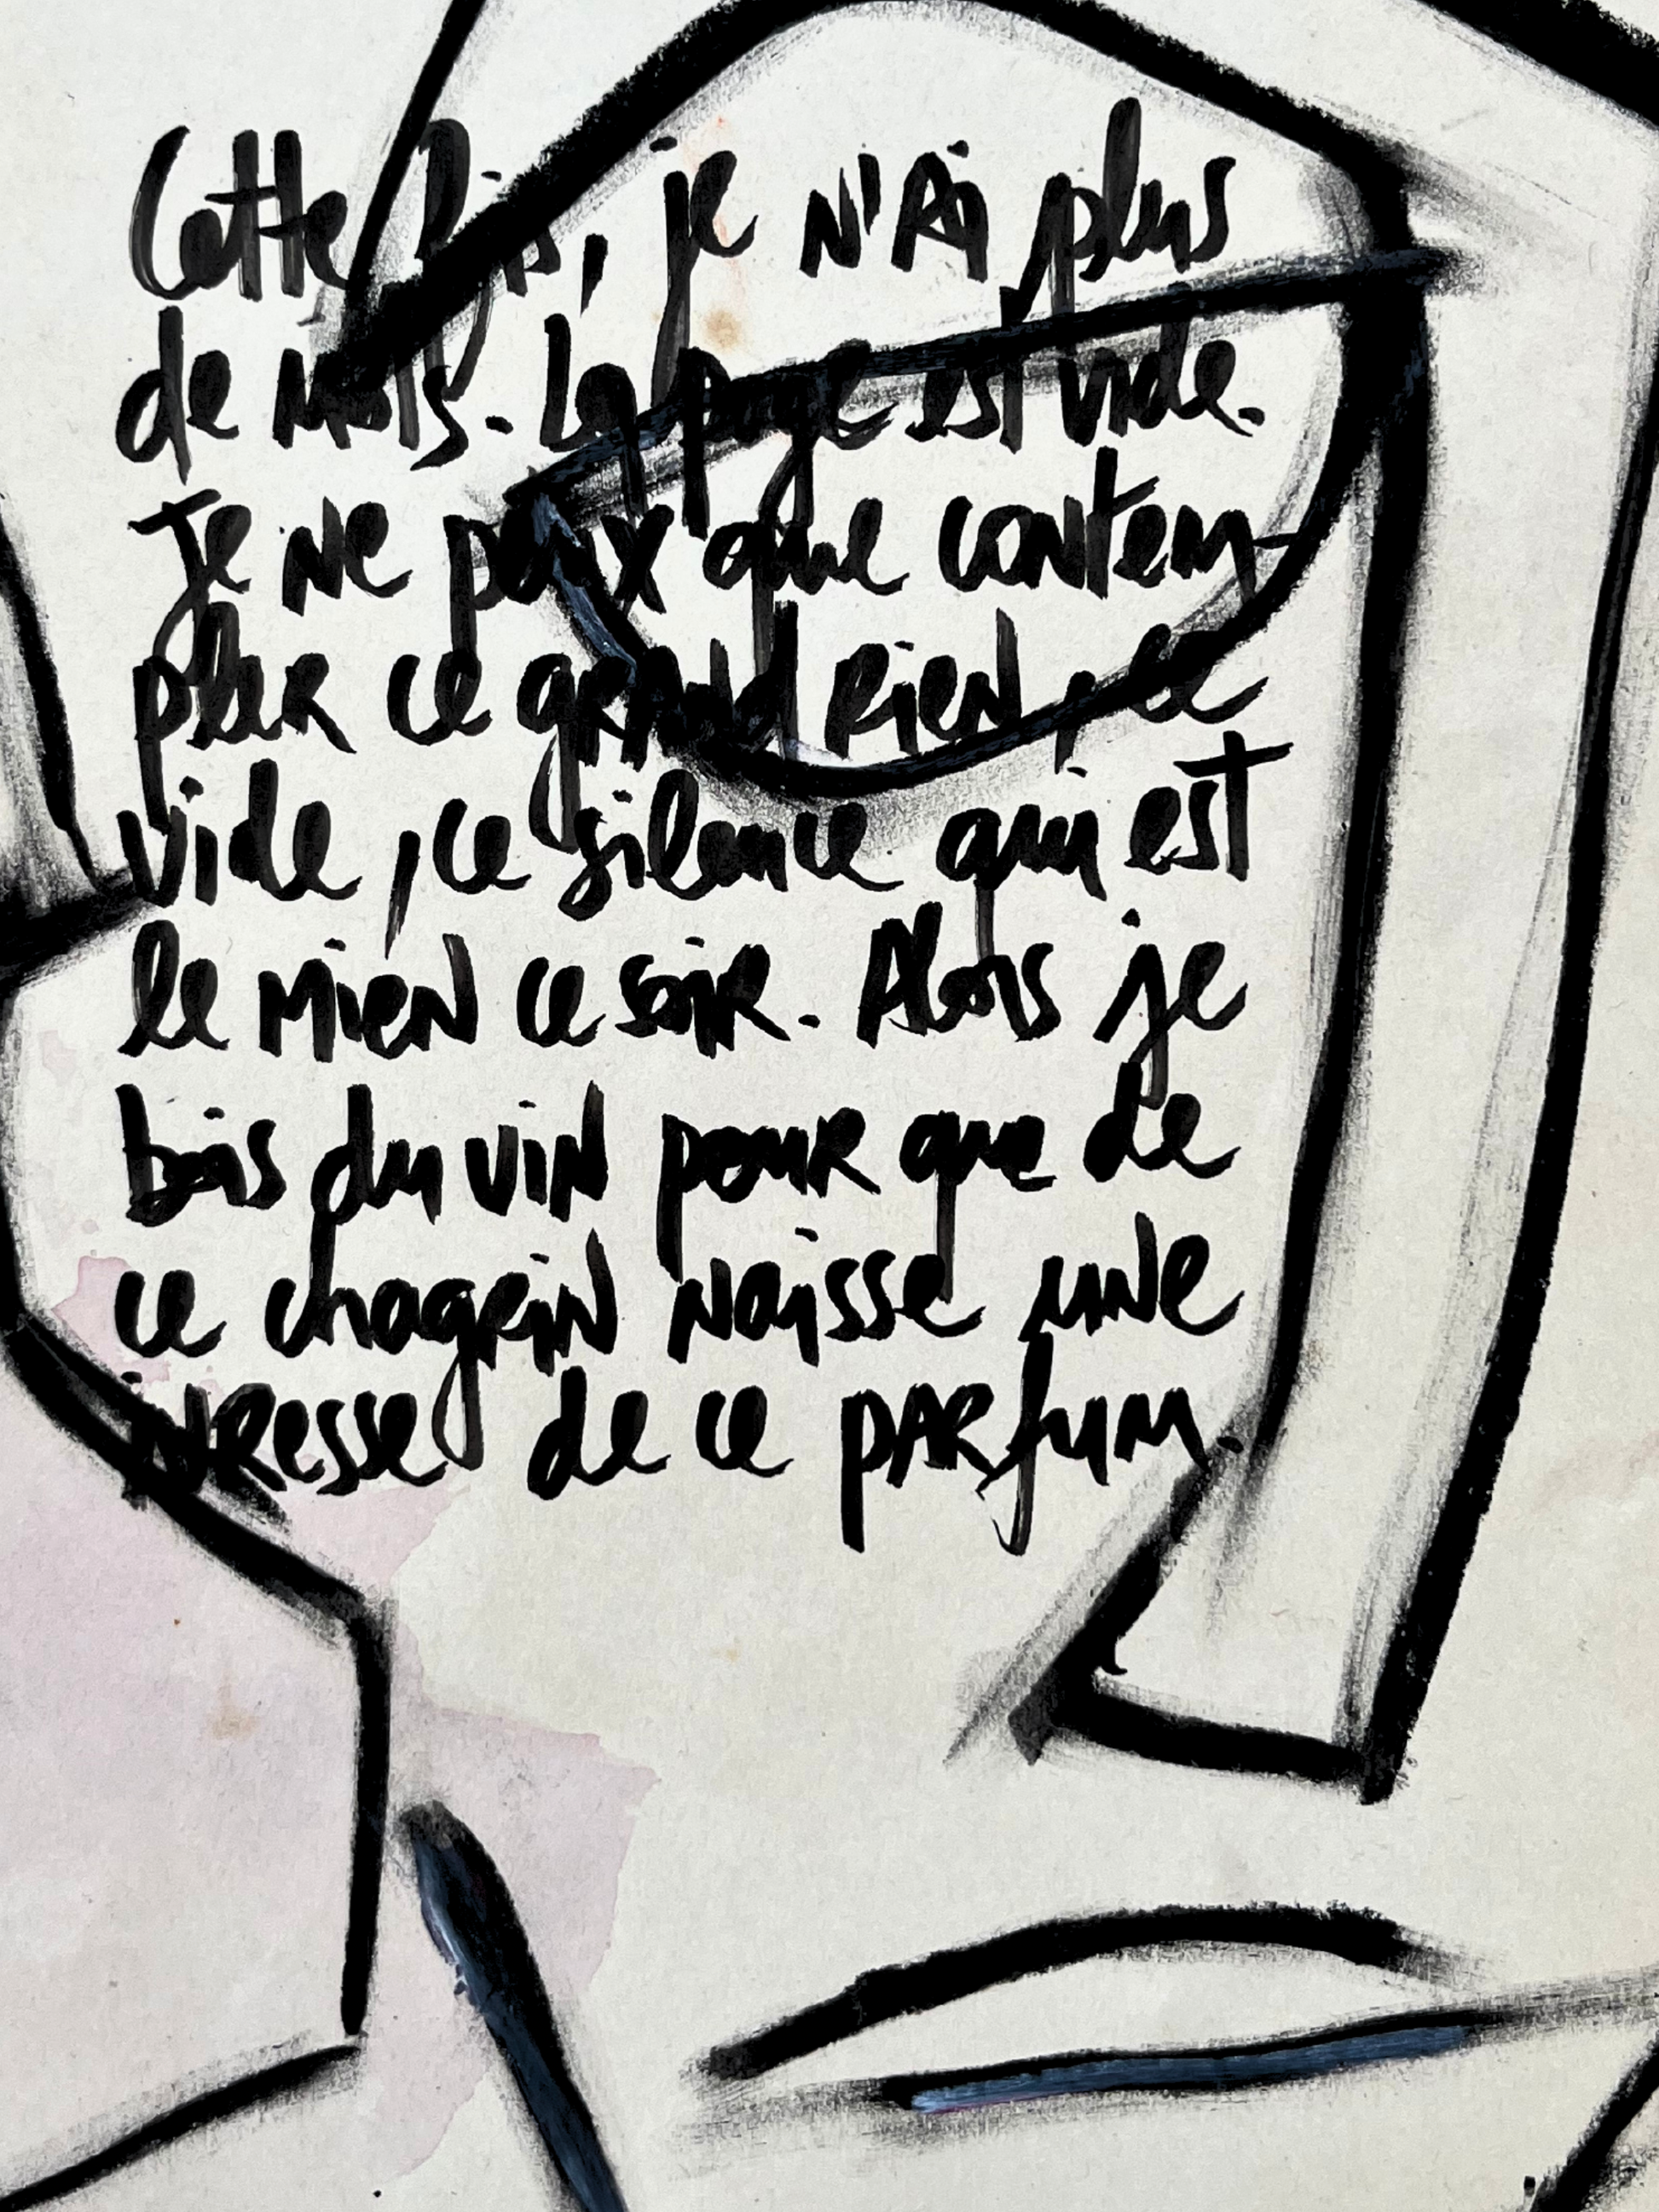 Cette fois, je n'ai plus
de mots. La page est vide.
Je ne peux que contem-
pler ce grand rien, ce
vide, ce silence qui est
le mien ce soir. Alors je
bois du vin pour que de
ce chagrin naisse une
ivresse de ce parfum.